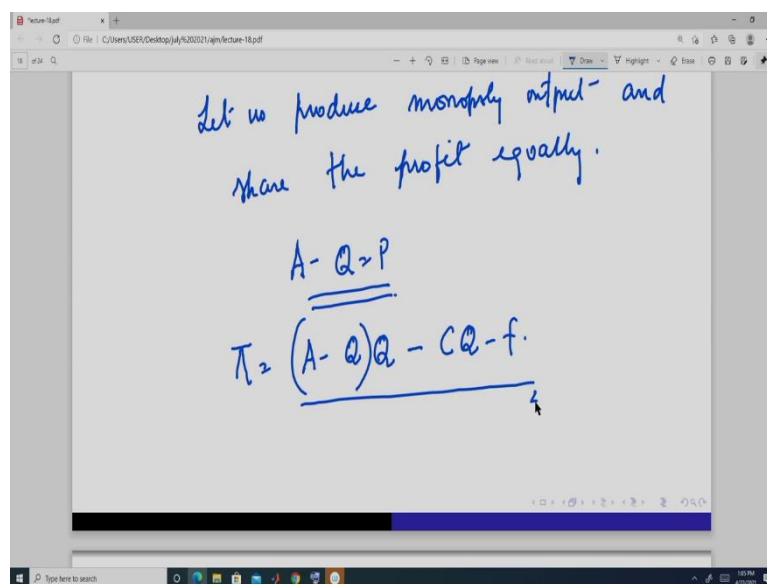 *lecture-18.pdf
File | C:/Users/USER/Desktop/july%202021/ajm/lecture-18.pdf
18 of 24
Page view | Read aloud | Draw Highlight Erase
Let us produce monopoly output and
share the profit equally.
A - Q = P
π = (A - Q)Q - CQ - f.
Type here to search
1:05 PM